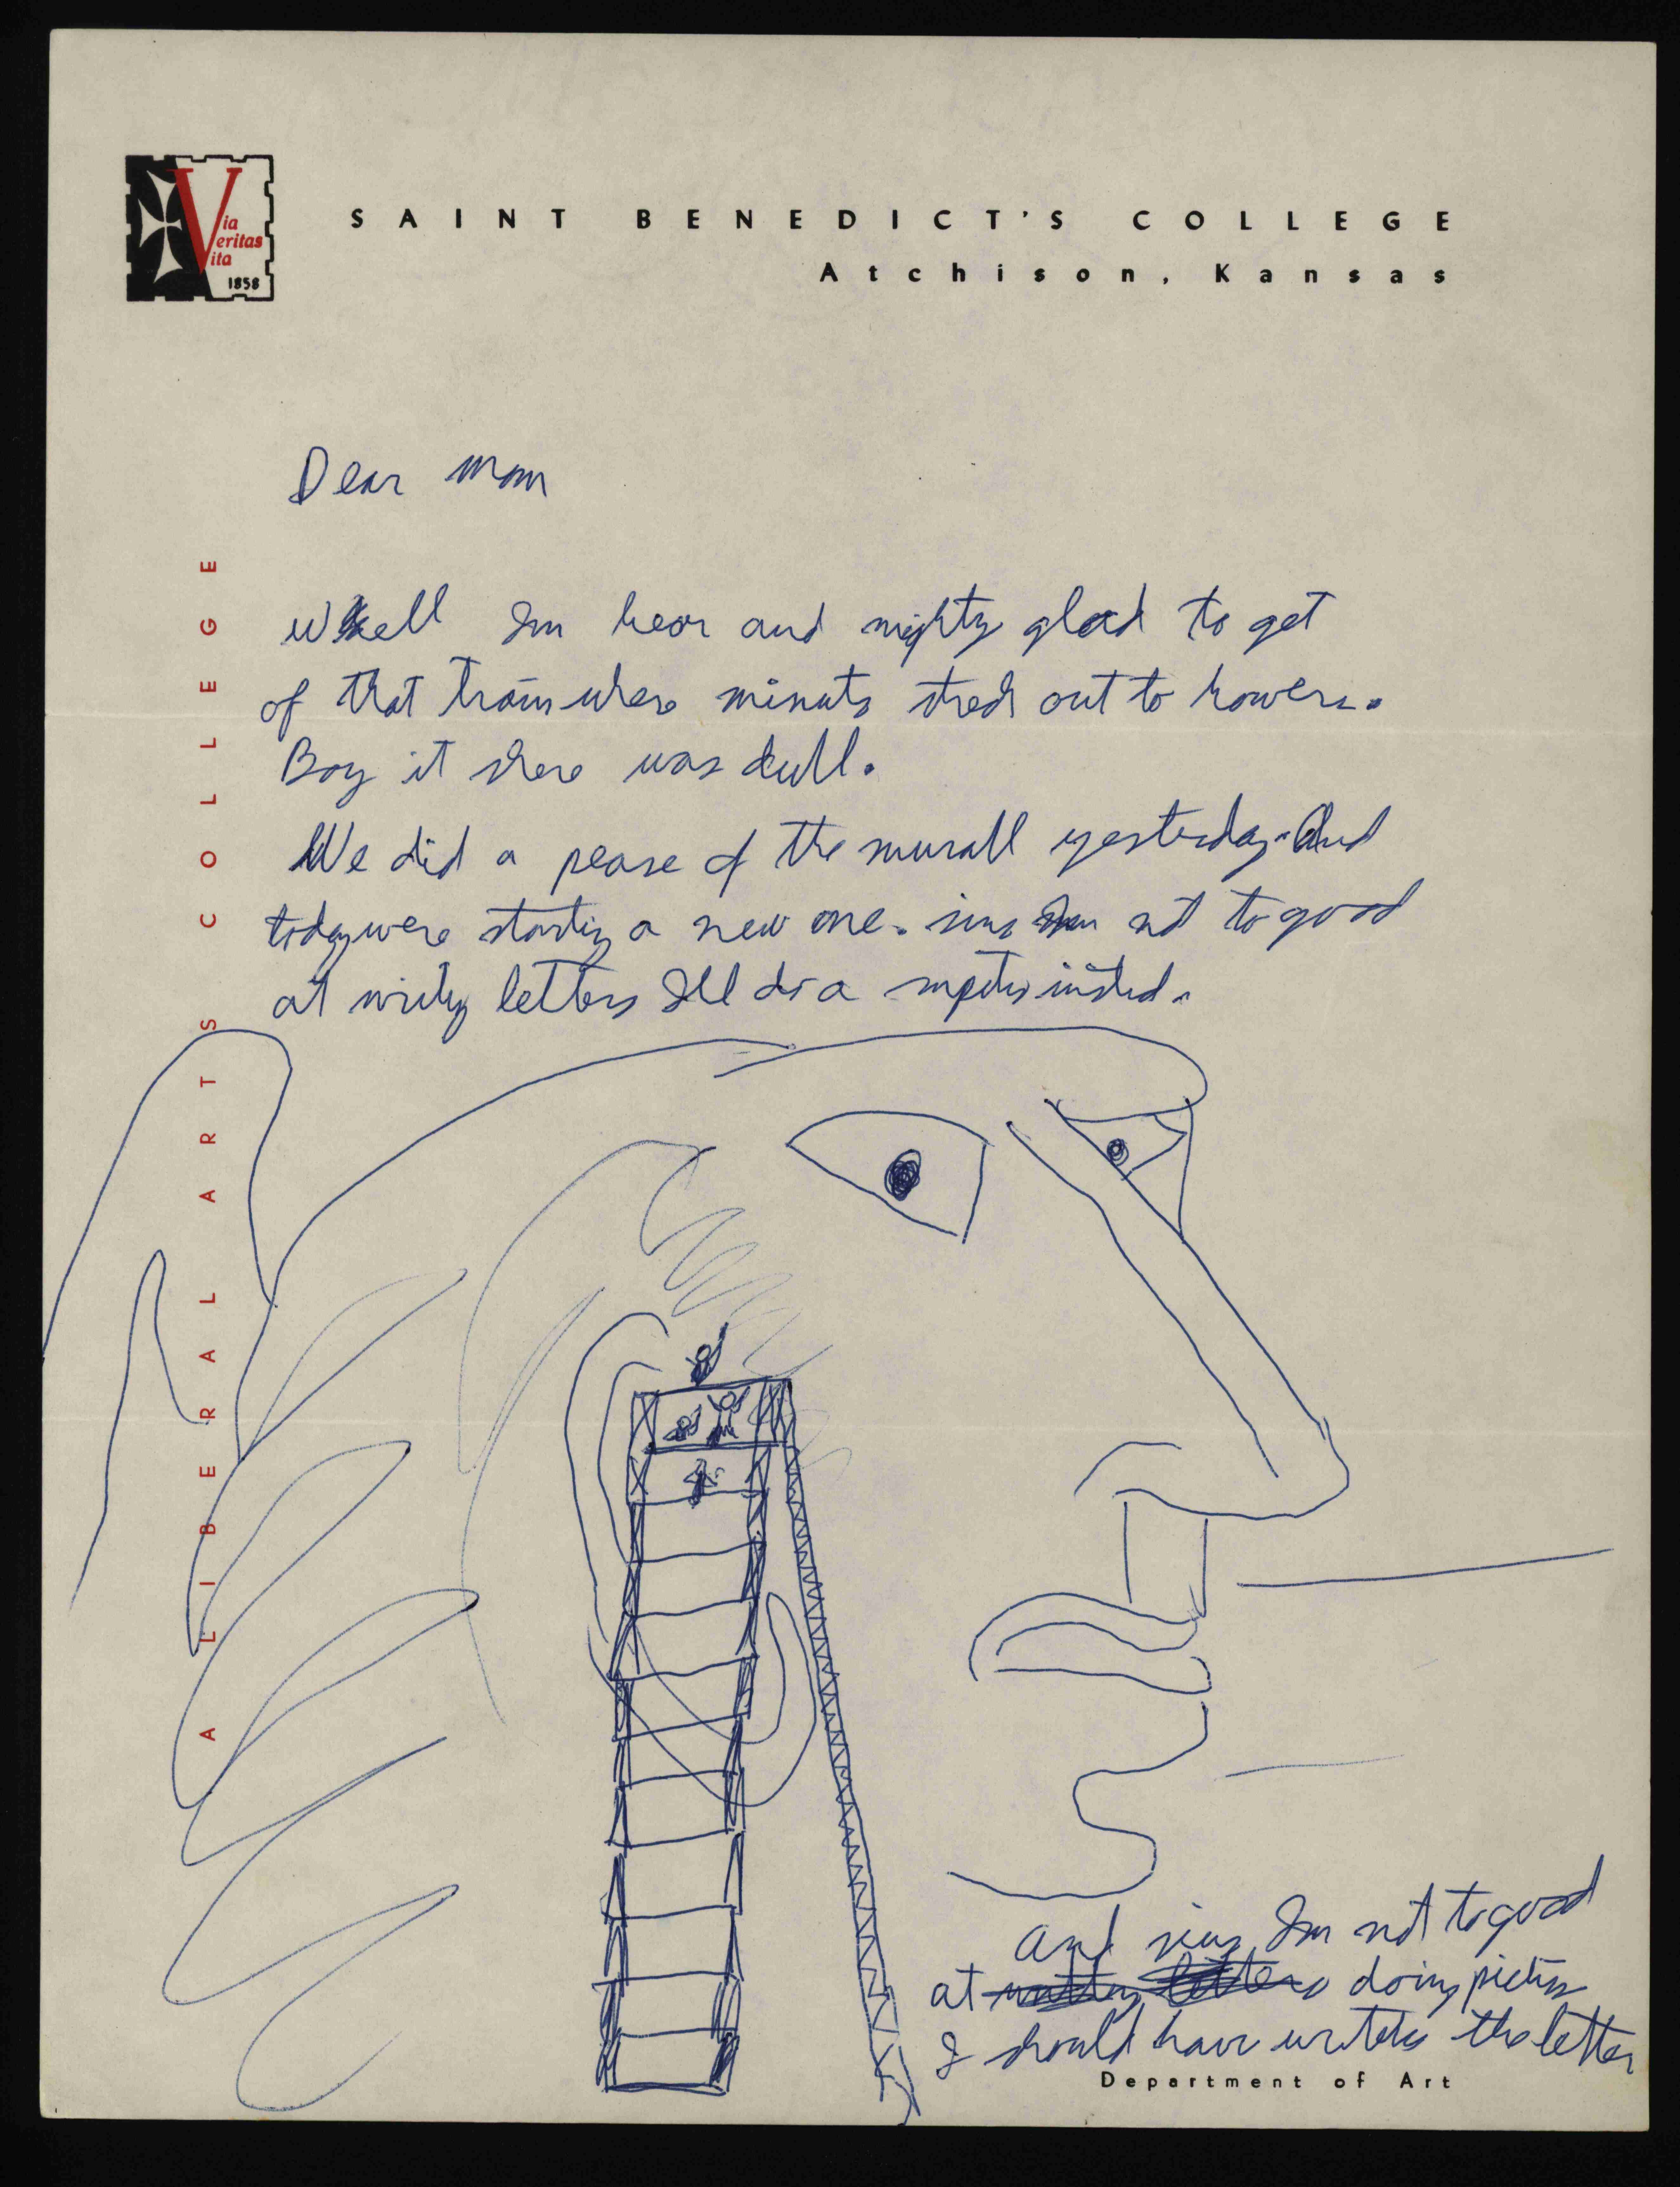 Via
Veritas
Vita
1858
SAINT BENEDICT'S COLLEGE
Atchison, Kansas
A LIBERAL ARTS COLLEGE
Dear Mom
Well Im hear and mighty glad to get
of that train where minuts out to howers.
Boy it shore was dull.
We did a pease of the murall yesterday. And
today were starting a new one. sins Im not to good
at writing letters Ill do a insted.
And sins Im not to good
at doing pictures
I should have writen the letter
Department of Art